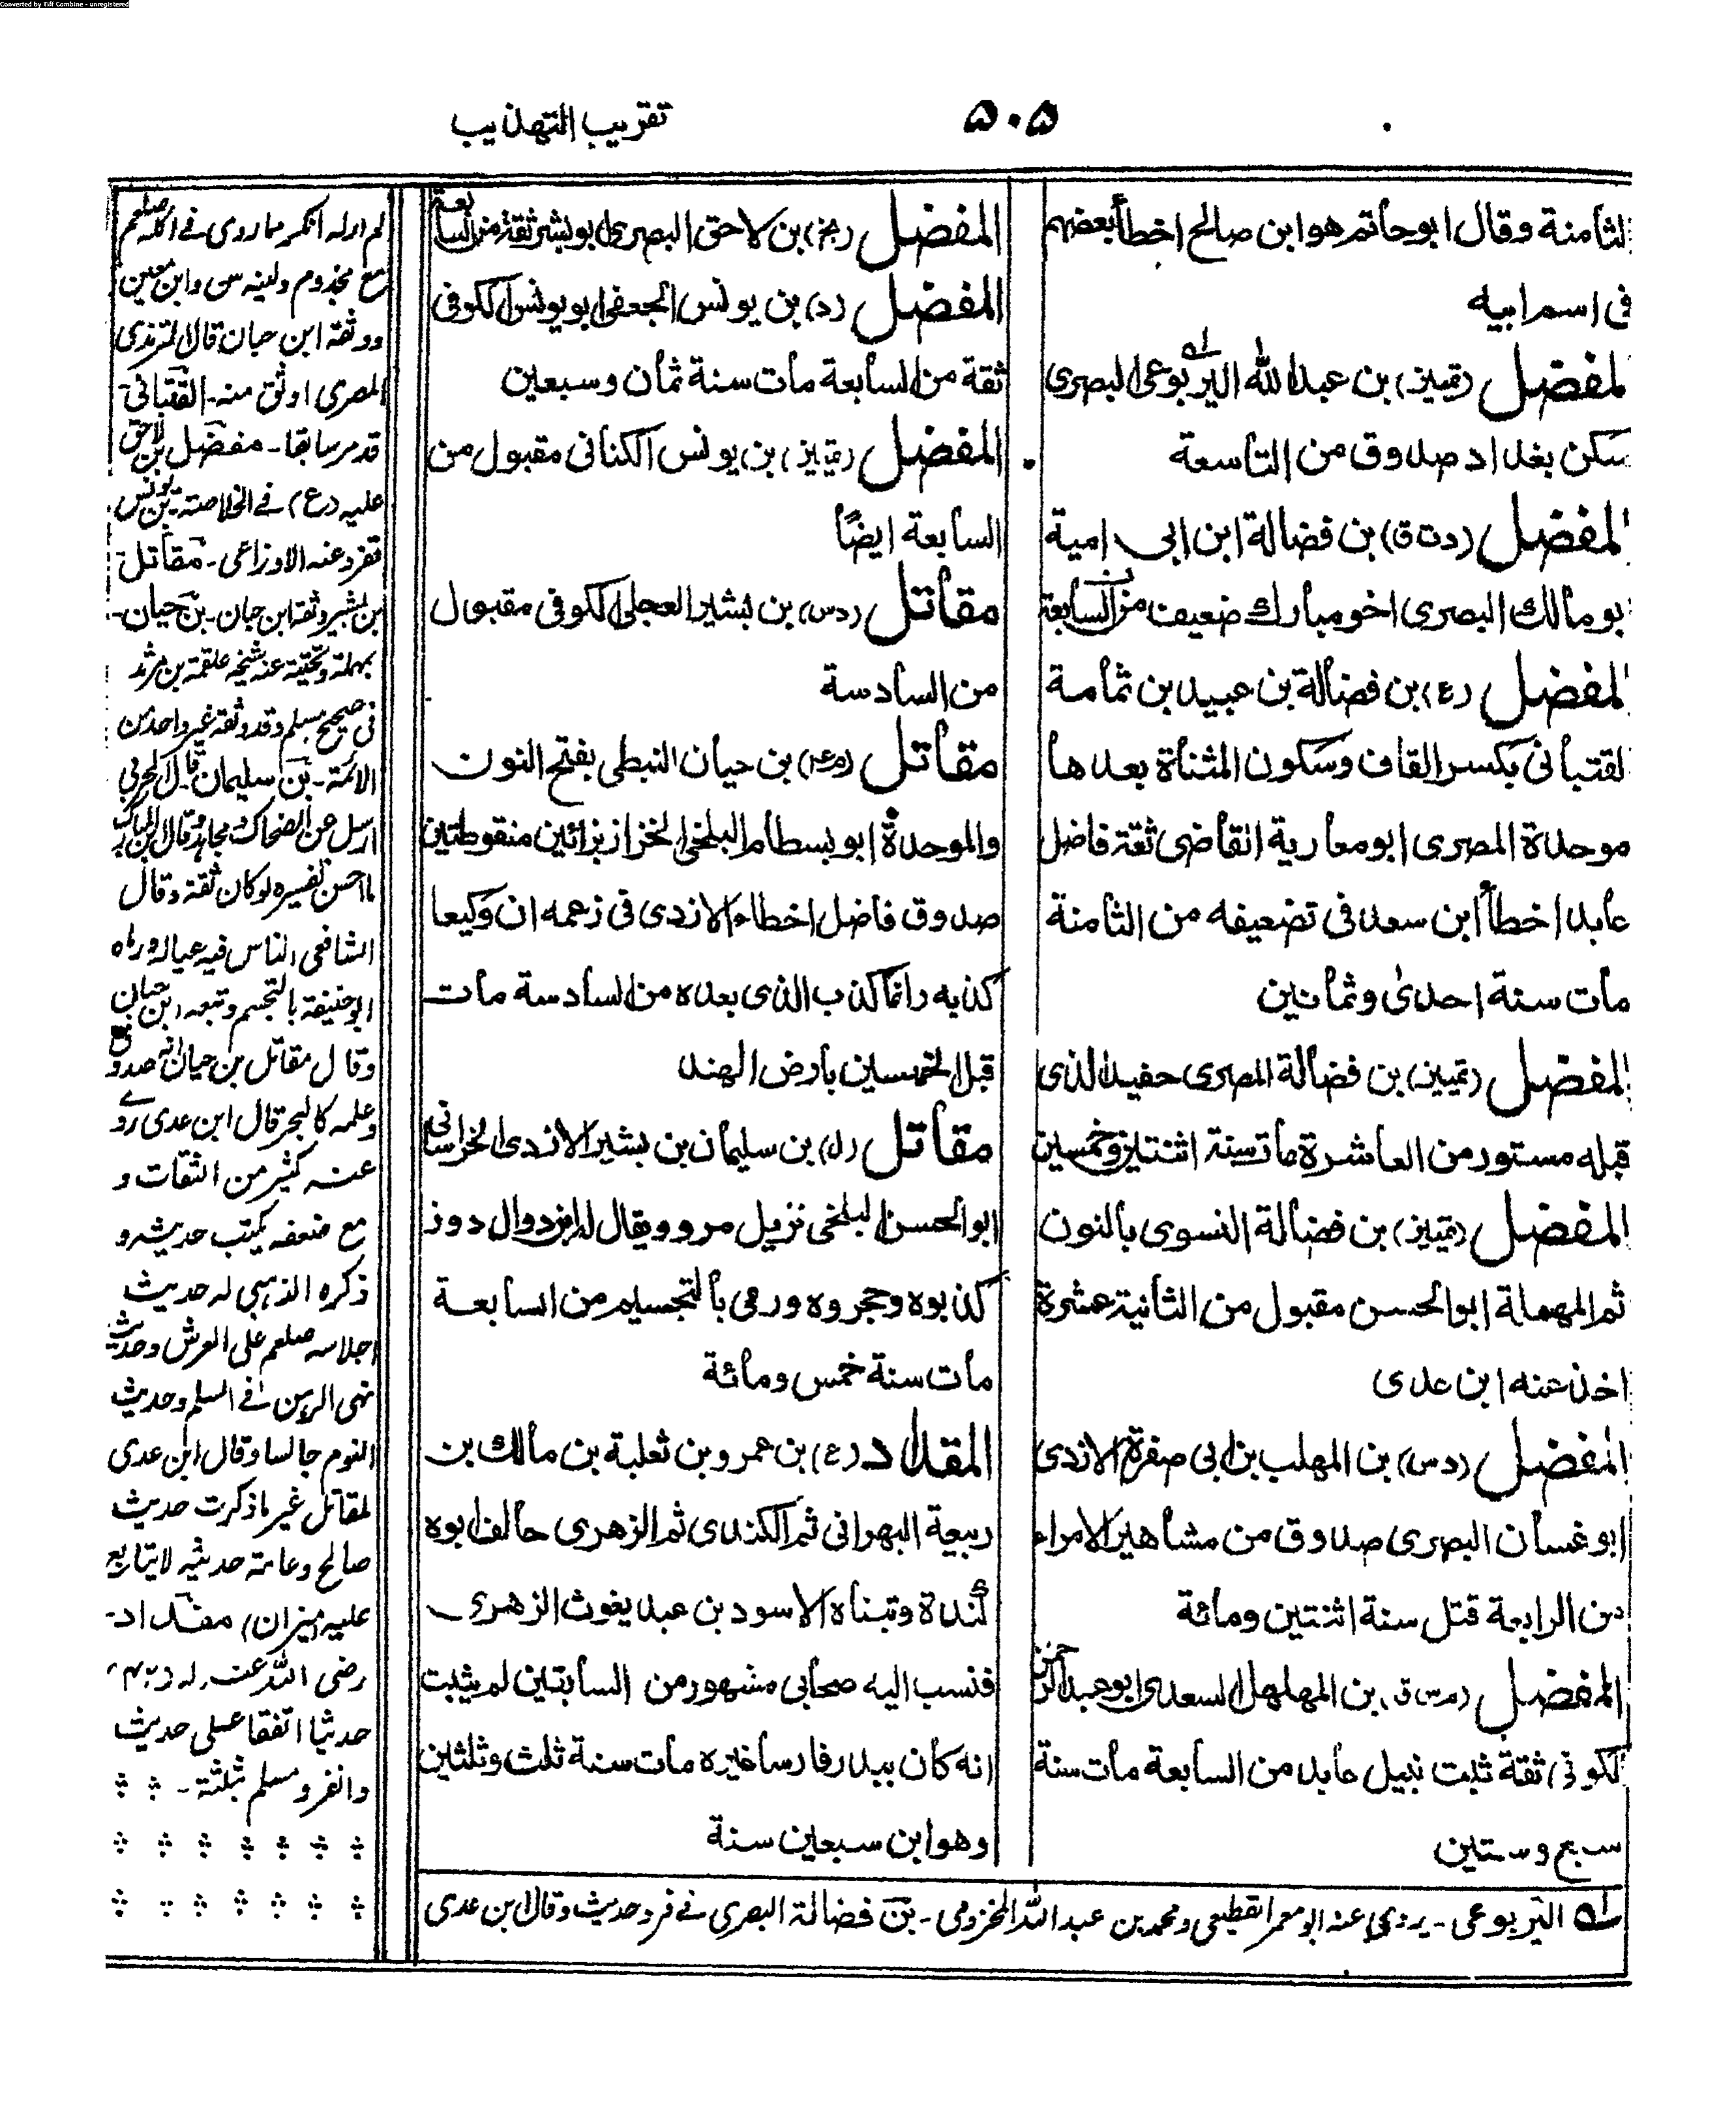 Converted by Tiff Combine - unregistered
۵۰۵
تقريب التهذيب
لثامنة وقال ابوحاتم هو ابن صالح اخطأ بعضهم
فى اسم ابيه
لمفضل (تمييز) بن عبد الله اليربوعى البصرى
سكن بغداد صدوق من التاسعة
لمفضل (دت ق) بن فضالة ابن ابى امية
بو مالك البصرى اخو مبارك ضعيف من السابعة
لمفضل (ع) بن فضالة بن عبيد بن ثمامة
لقتبانى بكسر القاف وسكون المثناة بعدها
موحدة المصرى ابو معاوية القاضى ثقة فاضل
عابد اخطأ ابن سعد فى تضعيفه من الثامنة
مات سنة احدى وثمانين
المفضل (تمييز) بن فضالة المصرى حفيد الذى
قبله مستور من العاشرة مات سنة اثنتين وخمسين
المفضل (تمييز) بن فضالة النسوى بالنون
ثم المهملة ابو الحسن مقبول من الثانية عشرة
اخذ عنه ابن عدى
المفضل (دس) بن المهلب بن ابى صفرة الازدى
ابو غسان البصرى صدوق من مشاهير الامراء
من الرابعة قتل سنة اثنتين ومائة
المفضل (م س ق) بن المهلهل السعدى ابو عبد الرحمن
لكوفى ثقة ثبت نبيل عابد من السابعة مات سنة
سبع وستين
المفضل بن لاحق البصرى ابو بشر ثقة من السابعة
المفضل (د) بن يونس الجعفى ابو يونس الكوفى
ثقة من السابعة مات سنة ثمان وسبعين
المفضل (تمييز) بن يونس الكنانى مقبول من
السابعة ايضًا
مقاتل (دس) بن بشير العجلى الكوفى مقبول
من السادسة
مقاتل (م عم) بن حيان النبطى بفتح النون
والموحدة ابو بسطام البلخى الخزاز بزائين منقوطتين
صدوق فاضل اخطاء الازدى فى زعمه ان وكيعا
كذبه وانما كذب الذى بعده من السادسة مات
قبل الخمسين بارض الهند
مقاتل (ل) بن سليمان بن بشير الازدى الخراسانى
ابو الحسن البلخى نزيل مرو ويقال له ابن دوال دوز
كذبوه وهجروه ورمى بالتجسيم من السابعة
مات سنة خمس ومائة
المقداد (ع) بن عمرو بن ثعلبة بن مالك بن
ربيعة البهرانى ثم الكندى ثم الزهرى حالف ابوه
كندة وتبناه الاسود بن عبد يغوث الزهرى
فنسب اليه صحابى مشهور من السابقين لم يثبت
انه كان ببدر فارسا غيره مات سنة ثلث وثلثين
وهو ابن سبعين سنة
لم ارله انكر مما روى فى اكله صلعم
مع مجذوم ولينه س وابن معين
ووثقه ابن حبان قال الترمذى
المصرى اوثق منه - القتبانى
قد مر سابقا - مفضل بن لاحق
عليه (ع) فى الخلاصة - بن يونس
تفرد عنه الاوزاعى - مقاتل
بن بشير وثقه ابن حبان - بن حيان -
بمهملة وتحتية عنه شيخه علقمة بن مرثد
فى صحيح مسلم وقد وثقه غير واحد من
الائمة - بن سليمان قال الحربى
ارسل عن الضحاك و مجاهد وقال ابن المبارك
ما احسن تفسيره لو كان ثقة وقال
الشافعى الناس فيه عياله ورماه
ابو حنيفة بالتجسم وتبعه ابن حبان
وقال مقاتل بن حيان انه صدوق
وعلمه كالبحر قال ابن عدى روى
عنه كثير من الثقات و
مع ضعفه يكتب حديثه و
ذكره الذهبى له حديث
اجلاسه صلعم على العرش وحديث
نهى الرهن فى السلم وحديث
النوم جالسا وقال ابن عدى
لمقاتل غير ما ذكرت حديث
صالح وعامة حديثه لا يتابع
عليه (ميزان) مقداد -
رضى الله عنه له (۴۲)
حديثا اتفقا على حديث
وانفرد مسلم بثلثة -
له اليربوعى - يروى عنه ابو معمر القطيعى ومحمد بن عبد الله المخزومى - بن فضالة البصرى فى فرد حديث وقال ابن عدى